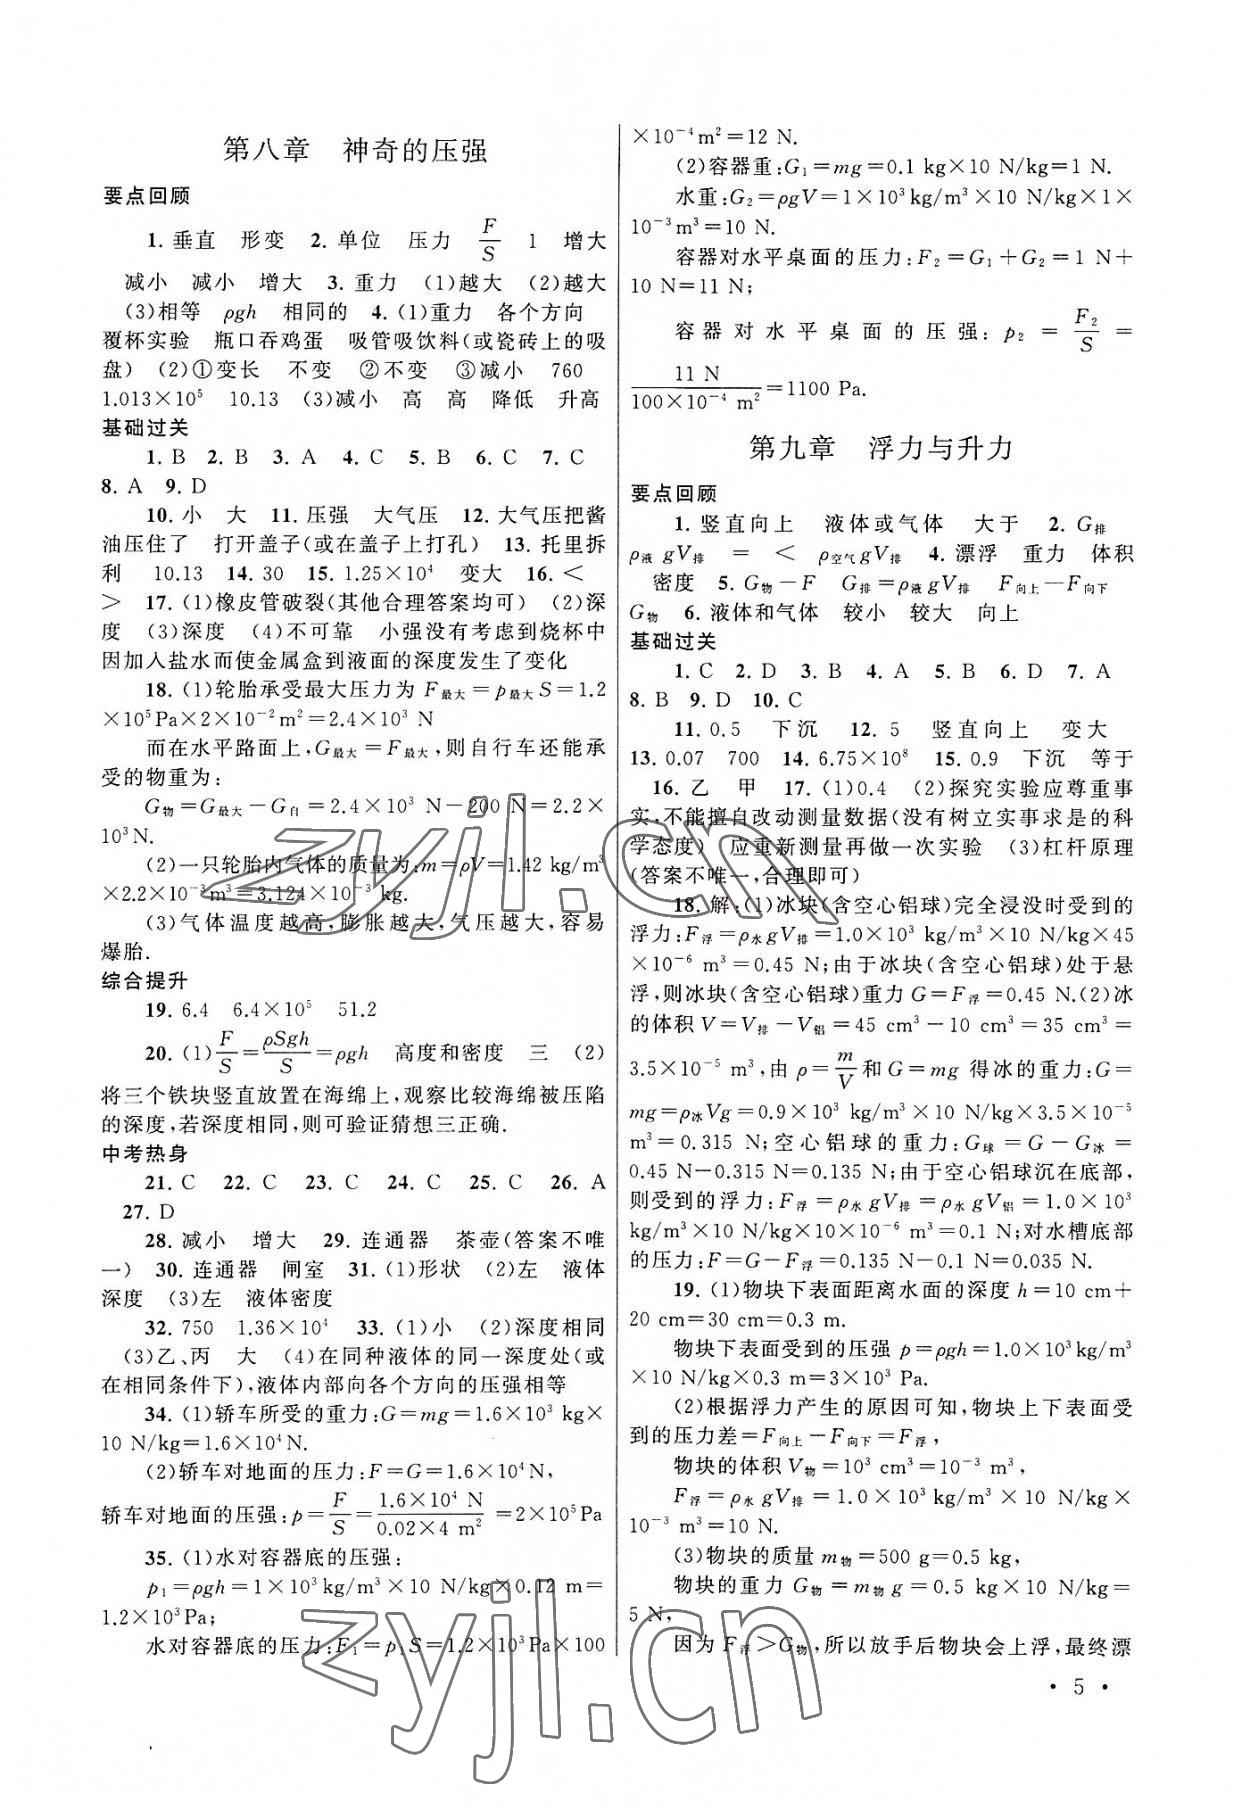 第八章　神奇的压强
要点回顾
1. 垂直　形变　2. 单位　压力　F/S　1　增大
减小　减小　增大　3. 重力　(1)越大　(2)越大
(3)相等　ρgh　相同的　4. (1)重力　各个方向
覆杯实验　瓶口吞鸡蛋　吸管吸饮料(或瓷砖上的吸
盘)　(2)①变长　不变　②不变　③减小　760
1.013×10⁵　10.13　(3)减小　高　高　降低　升高
基础过关
1. B　2. B　3. A　4. C　5. B　6. C　7. C
8. A　9. D
10. 小　大　11. 压强　大气压　12. 大气压把酱
油压住了　打开盖子(或在盖子上打孔)　13. 托里拆
利　10.13　14. 30　15. 1.25×10⁴　变大　16. <
>　17. (1)橡皮管破裂(其他合理答案均可)　(2)深
度　(3)深度　(4)不可靠　小强没有考虑到烧杯中
因加入盐水而使金属盒到液面的深度发生了变化
18. (1)轮胎承受最大压力为 F最大=p最大S=1.2
×10⁵Pa×2×10⁻²m²=2.4×10³ N
而在水平路面上,G最大=F最大,则自行车还能承
受的物重为:
G物=G最大-G自=2.4×10³ N-200 N=2.2×
10³N.
(2)一只轮胎内气体的质量为:m=ρV=1.42 kg/m³
×2.2×10⁻³m³=3.124×10⁻³ kg.
(3)气体温度越高,膨胀越大,气压越大,容易
爆胎.
综合提升
19. 6.4　6.4×10⁵　51.2
20. (1)F/S=ρSgh/S=ρgh　高度和密度　三　(2)
将三个铁块竖直放置在海绵上,观察比较海绵被压陷
的深度,若深度相同,则可验证猜想三正确.
中考热身
21. C　22. C　23. C　24. C　25. C　26. A
27. D
28. 减小　增大　29. 连通器　茶壶(答案不唯
一)　30. 连通器　闸室　31. (1)形状　(2)左　液体
深度　(3)左　液体密度
32. 750　1.36×10⁴　33. (1)小　(2)深度相同
(3)乙、丙　大　(4)在同种液体的同一深度处(或
在相同条件下),液体内部向各个方向的压强相等
34. (1)轿车所受的重力:G=mg=1.6×10³ kg×
10 N/kg=1.6×10⁴N.
(2)轿车对地面的压力:F=G=1.6×10⁴N,
轿车对地面的压强:p=F/S=1.6×10⁴ N/0.02×4 m²=2×10⁵Pa
35. (1)水对容器底的压强:
p₁=ρgh=1×10³kg/m³×10 N/kg×0.12 m=
1.2×10³Pa;
水对容器底的压力:F₁=p₁S=1.2×10³Pa×100
×10⁻⁴m²=12 N.
(2)容器重:G₁=mg=0.1 kg×10 N/kg=1 N.
水重:G₂=ρgV=1×10³kg/m³×10 N/kg×1×
10⁻³m³=10 N.
容器对水平桌面的压力:F₂=G₁+G₂=1 N+
10 N=11 N;
容器对水平桌面的压强:p₂=F₂/S=
11 N/100×10⁻⁴ m²=1100 Pa.
第九章　浮力与升力
要点回顾
1. 竖直向上　液体或气体　大于　2. G排
ρ液gV排　=　<　ρ空气gV排　4. 漂浮　重力　体积
密度　5. G物-F　G排=ρ液gV排　F向上-F向下
G物　6. 液体和气体　较小　较大　向上
基础过关
1. C　2. D　3. B　4. A　5. B　6. D　7. A
8. B　9. D　10. C
11. 0.5　下沉　12. 5　竖直向上　变大
13. 0.07　700　14. 6.75×10⁸　15. 0.9　下沉　等于
16. 乙　甲　17. (1)0.4　(2)探究实验应尊重事
实,不能擅自改动测量数据(没有树立实事求是的科
学态度)　应重新测量再做一次实验　(3)杠杆原理
(答案不唯一,合理即可)
18. 解:(1)冰块(含空心铝球)完全浸没时受到的
浮力:F浮=ρ水gV排=1.0×10³ kg/m³×10 N/kg×45
×10⁻⁶ m³=0.45 N;由于冰块(含空心铝球)处于悬
浮,则冰块(含空心铝球)重力 G=F浮=0.45 N.(2)冰
的体积 V=V排-V铝=45 cm³-10 cm³=35 cm³=
3.5×10⁻⁵ m³,由 ρ=m/V和 G=mg 得冰的重力:G=
mg=ρ冰Vg=0.9×10³ kg/m³×10 N/kg×3.5×10⁻⁵
m³=0.315 N;空心铝球的重力:G球=G-G冰=
0.45 N-0.315 N=0.135 N;由于空心铝球沉在底部,
则受到的浮力:F浮=ρ水gV排=ρ水gV铝=1.0×10³
kg/m³×10 N/kg×10×10⁻⁶ m³=0.1 N;对水槽底部
的压力:F=G-F浮=0.135 N-0.1 N=0.035 N.
19. (1)物块下表面距离水面的深度 h=10 cm+
20 cm=30 cm=0.3 m.
物块下表面受到的压强 p=ρgh=1.0×10³kg/m³
×10 N/kg×0.3 m=3×10³ Pa.
(2)根据浮力产生的原因可知,物块上下表面受
到的压力差=F向上-F向下=F浮,
物块的体积 V物=10³ cm³=10⁻³ m³,
F浮=ρ水gV排=1.0×10³ kg/m³×10 N/kg×
10⁻³ m³=10 N.
(3)物块的质量 m物=500 g=0.5 kg,
物块的重力 G物=m物g=0.5 kg×10 N/kg=
5 N,
因为 F浮>G物,所以放手后物块会上浮,最终漂
· 5 ·
zyjl.cn
zyjl.cn